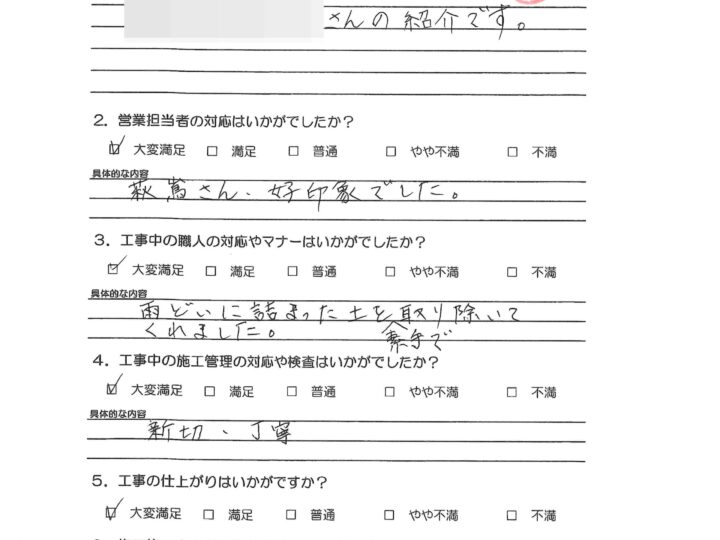 さんの紹介です。
2．営業担当者の対応はいかがでしたか？
☑ 大変満足 □ 満足 □ 普通 □ やや不満 □ 不満
具体的な内容
萩嶌さん、好印象でした。
3．工事中の職人の対応やマナーはいかがでしたか？
☑ 大変満足 □ 満足 □ 普通 □ やや不満 □ 不満
具体的な内容
雨どいに詰まった土を取り除いて
くれました。 素手で
4．工事中の施工管理の対応や検査はいかがでしたか？
☑ 大変満足 □ 満足 □ 普通 □ やや不満 □ 不満
具体的な内容
新切、丁寧
5．工事の仕上がりはいかがですか？
☑ 大変満足 □ 満足 □ 普通 □ やや不満 □ 不満